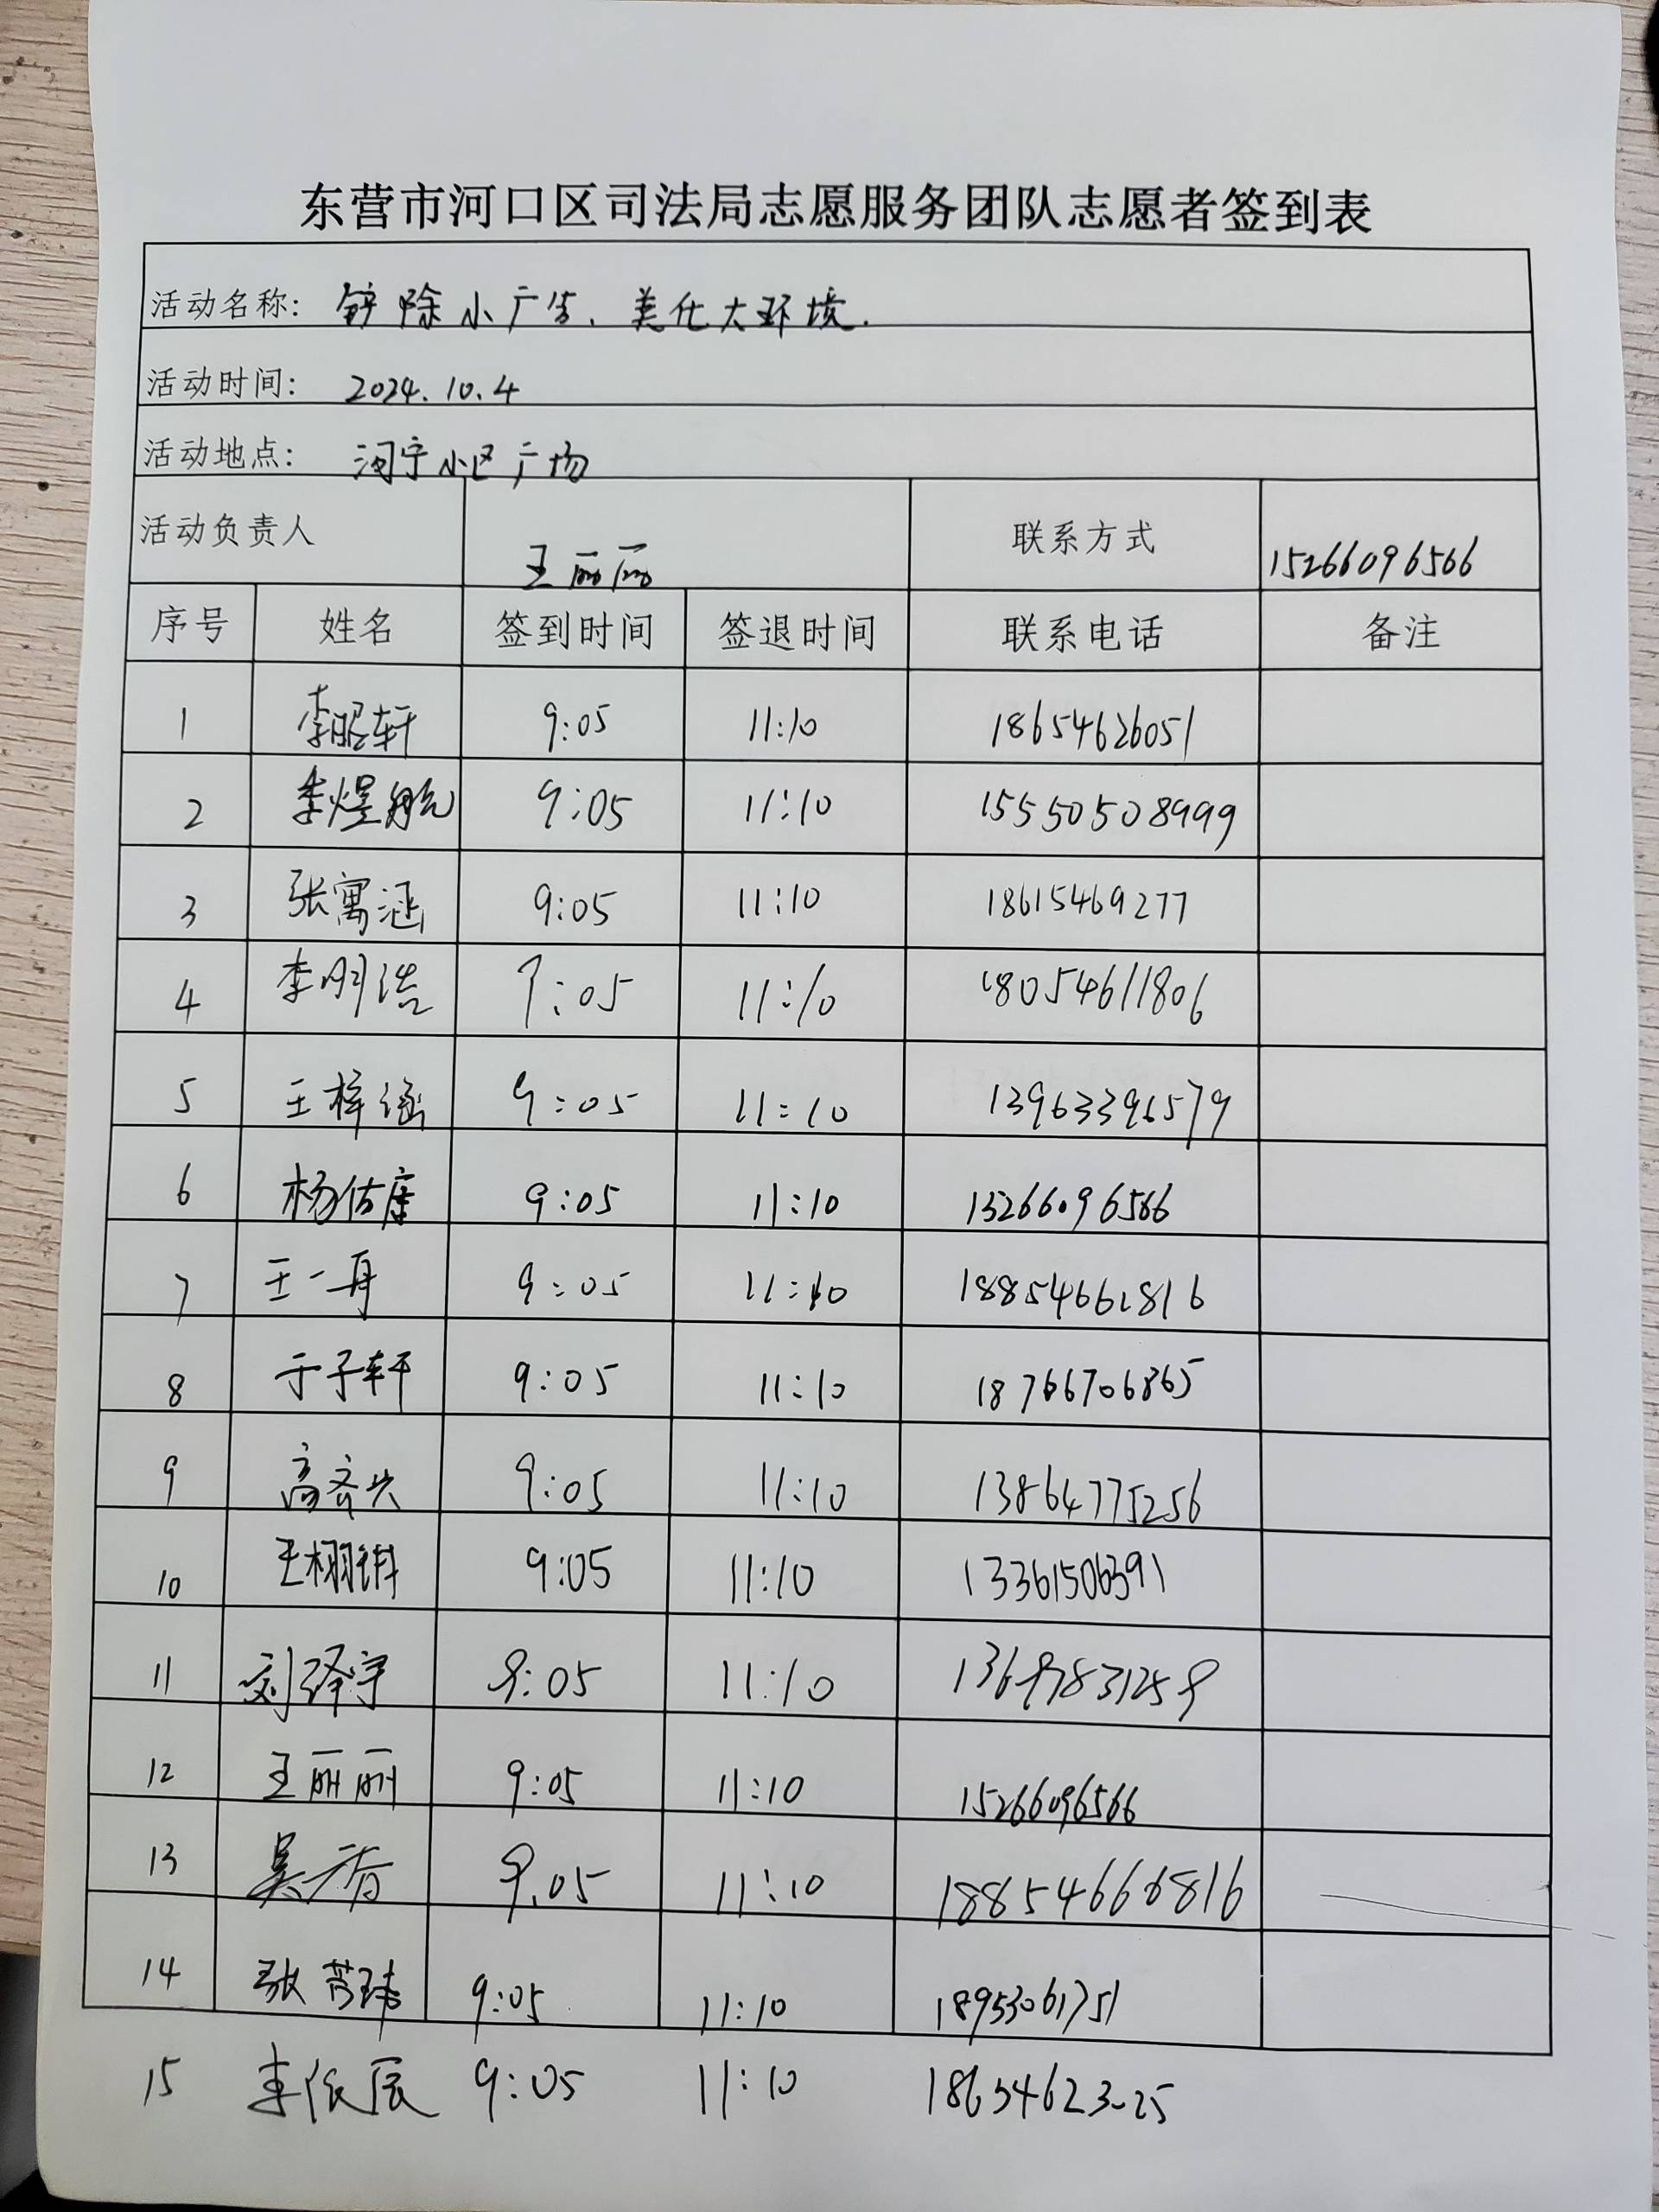 东营市河口区司法局志愿服务团队志愿者签到表
活动名称: 铲除小广告、美化大环境.
活动时间: 2024.10.4
活动地点: 河宁小区广场
活动负责人 王丽丽 联系方式 15266096566
序号 姓名 签到时间 签退时间 联系电话 备注
1 李昭轩 9:05 11:10 18654626051
2 李煜航 9:05 11:10 15550508999
3 张寓涵 9:05 11:10 18615469277
4 李明浩 9:05 11:10 18054611806
5 王梓涵 9:05 11:10 13963396579
6 杨佑唐 9:05 11:10 15266096566
7 王一舟 9:05 11:10
8 于子轩 9:05 11:10 18766706865
9 高齐兴 9:05 11:10 13864775256
10 9:05 11:10 13361506391
11 刘泽宇 9:05 11:10
12 王丽丽 9:05 11:10 15266096566
13 9:05 11:10
14 9:05 11:10 18953061751
15 李依宸 9:05 11:10